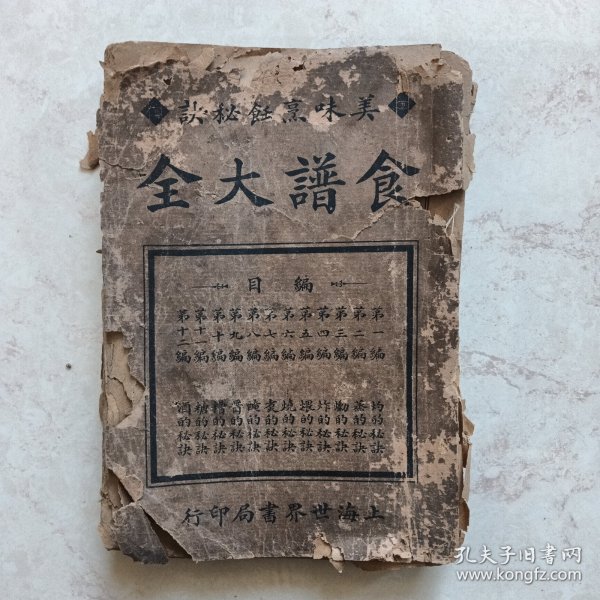 美味烹飪秘訣
食譜大全
編目
第一編 的秘訣
第二編 蒸的秘訣
第三編 的秘訣
第四編 炸的秘訣
第五編 煨的秘訣
第六編 燒的秘訣
第七編 的秘訣
第八編 的秘訣
第九編 的秘訣
第十編 糟的秘訣
第十一編 糖的秘訣
第十二編 酒的秘訣
上海世界書局印行
孔夫子旧书网
www.kongfz.com